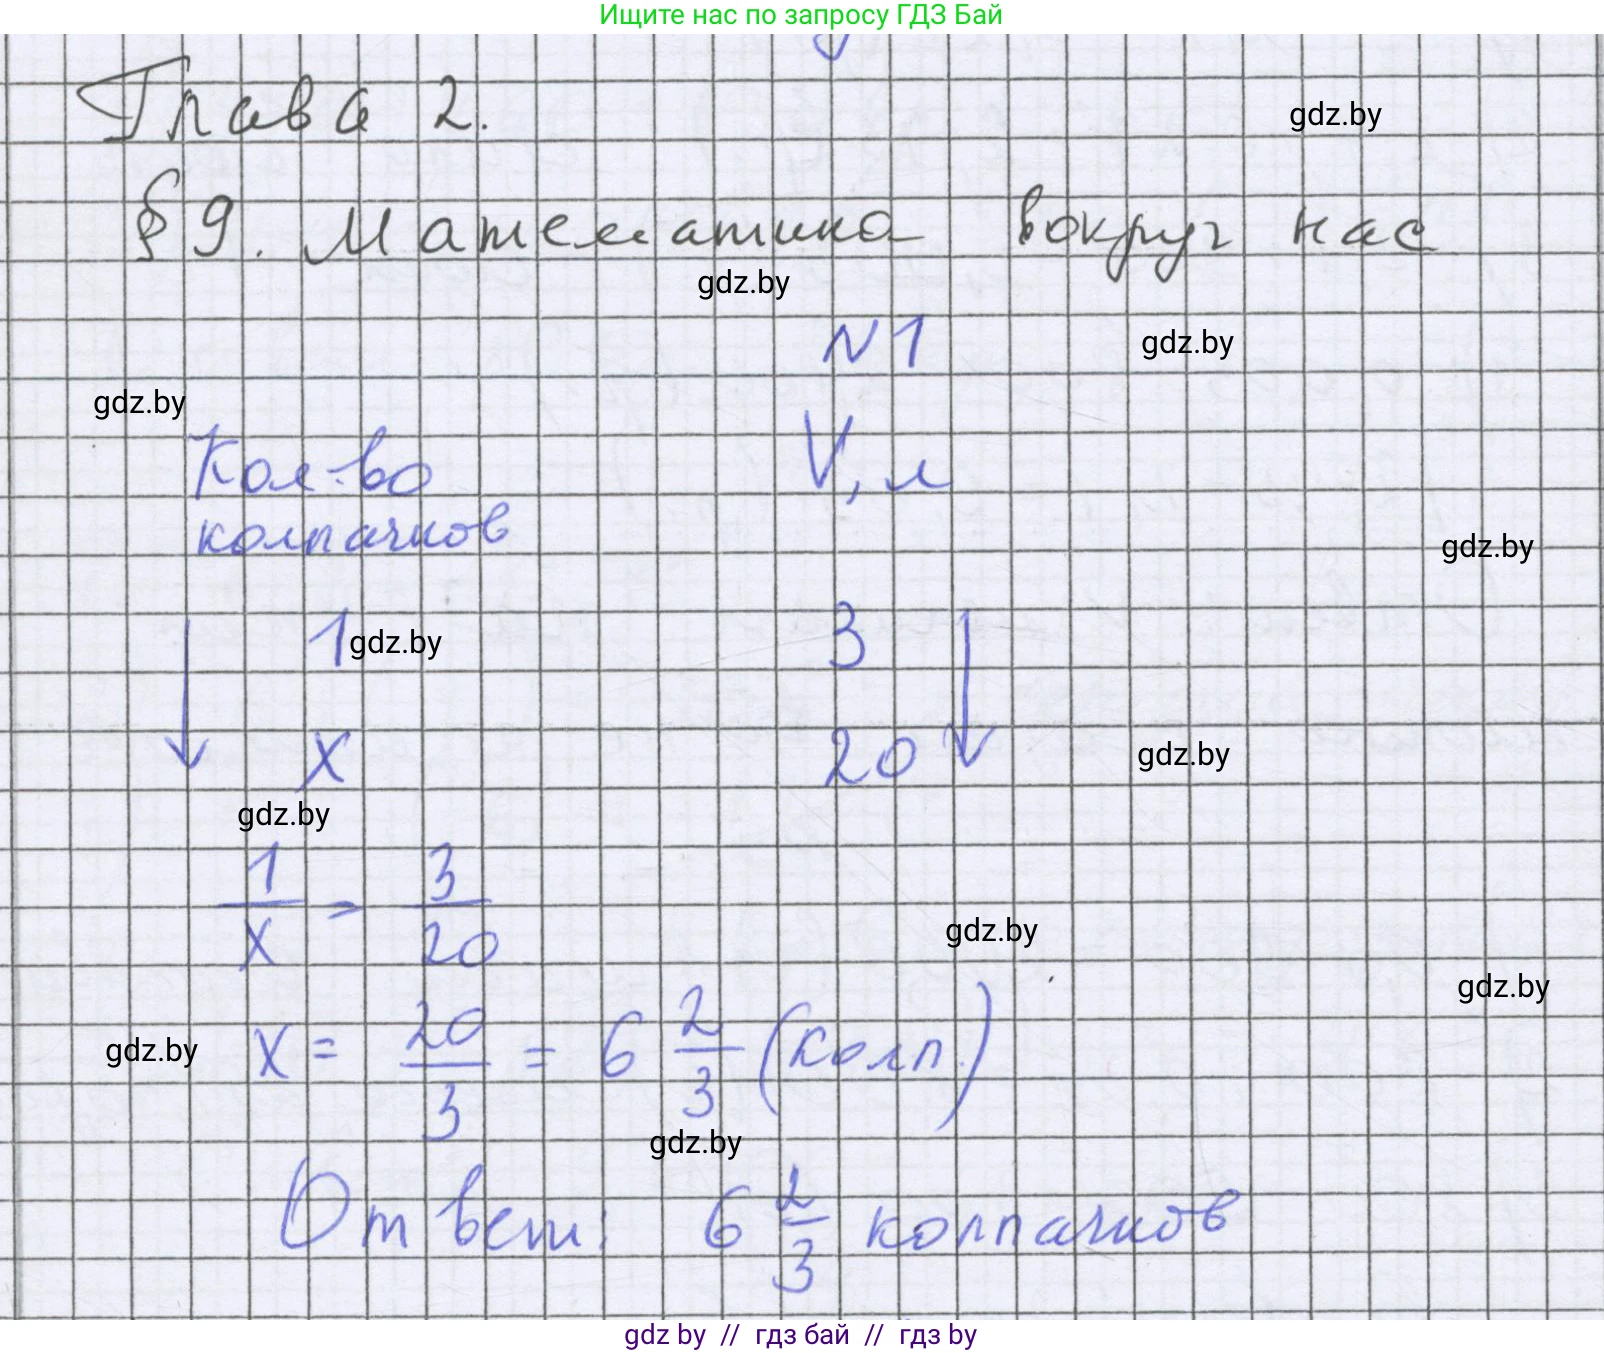 Ищите нас по запросу ГДЗ Бай
Глава 2.
gdz.by
§ 9. Математика вокруг нас
gdz.by
N1
gdz.by
gdz.by
Кол-во V, л
колпачков
gdz.by
1 gdz.by 3
x 20
gdz.by
gdz.by
1/x = 3/20
gdz.by
gdz.by
gdz.by
x = 20/3 = 6 2/3 (колп.)
gdz.by
Ответ: 6 2/3 колпачков
gdz by // гдз бай // гдз by